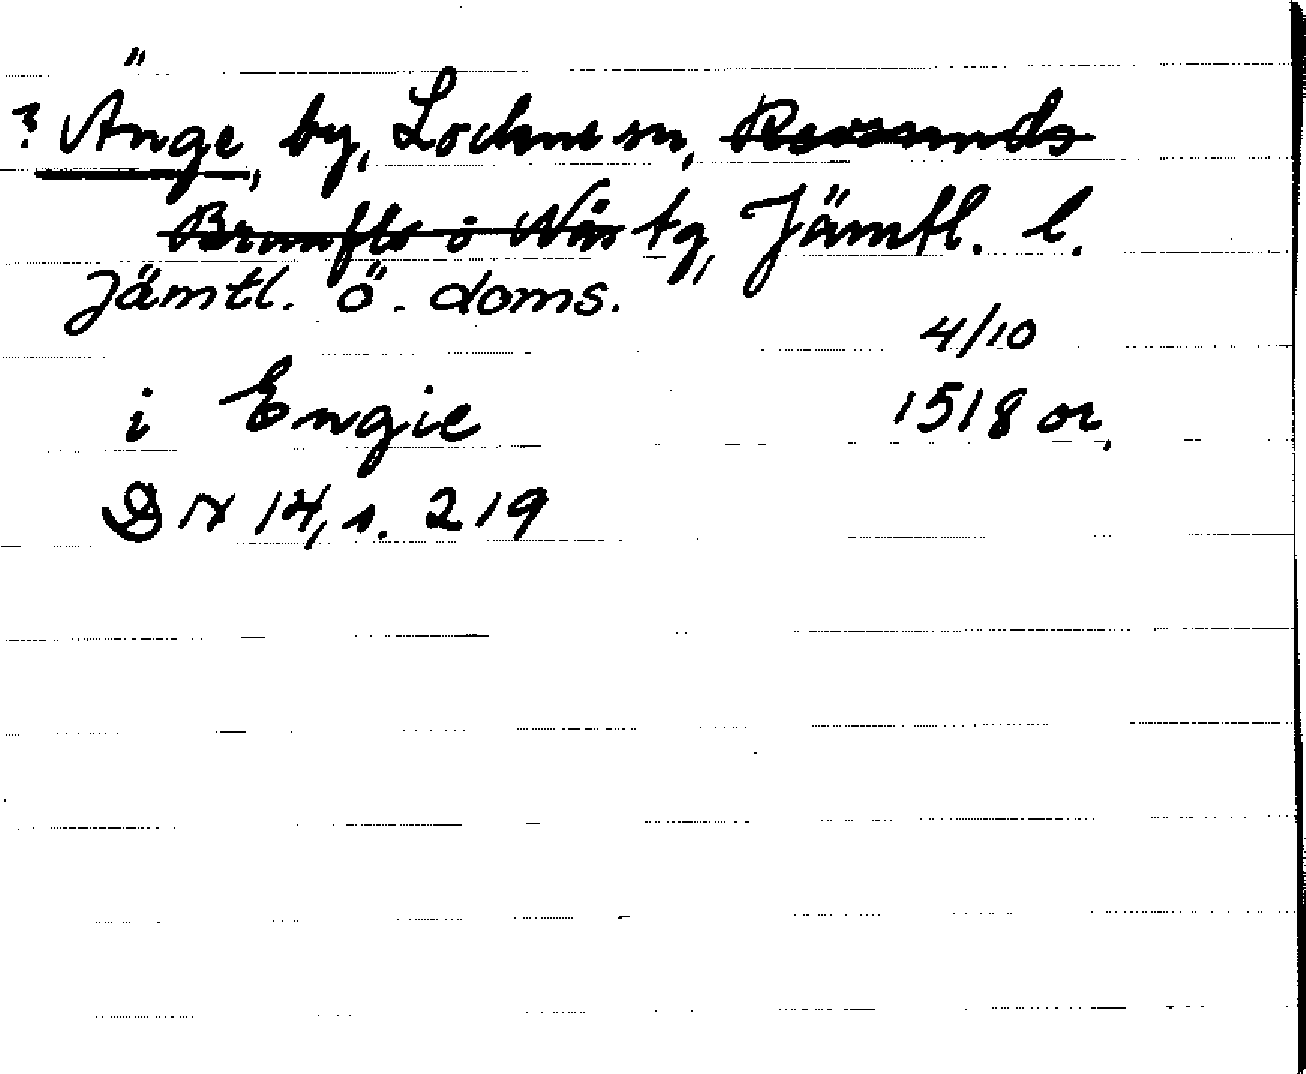 ? Änge, by, Lockne sn, Revsunds
Brunflo o Näs tg, Jämtl. l.
Jämtl. ö. doms.
4/10
i Engie 1518 or.
DN 14, s. 219